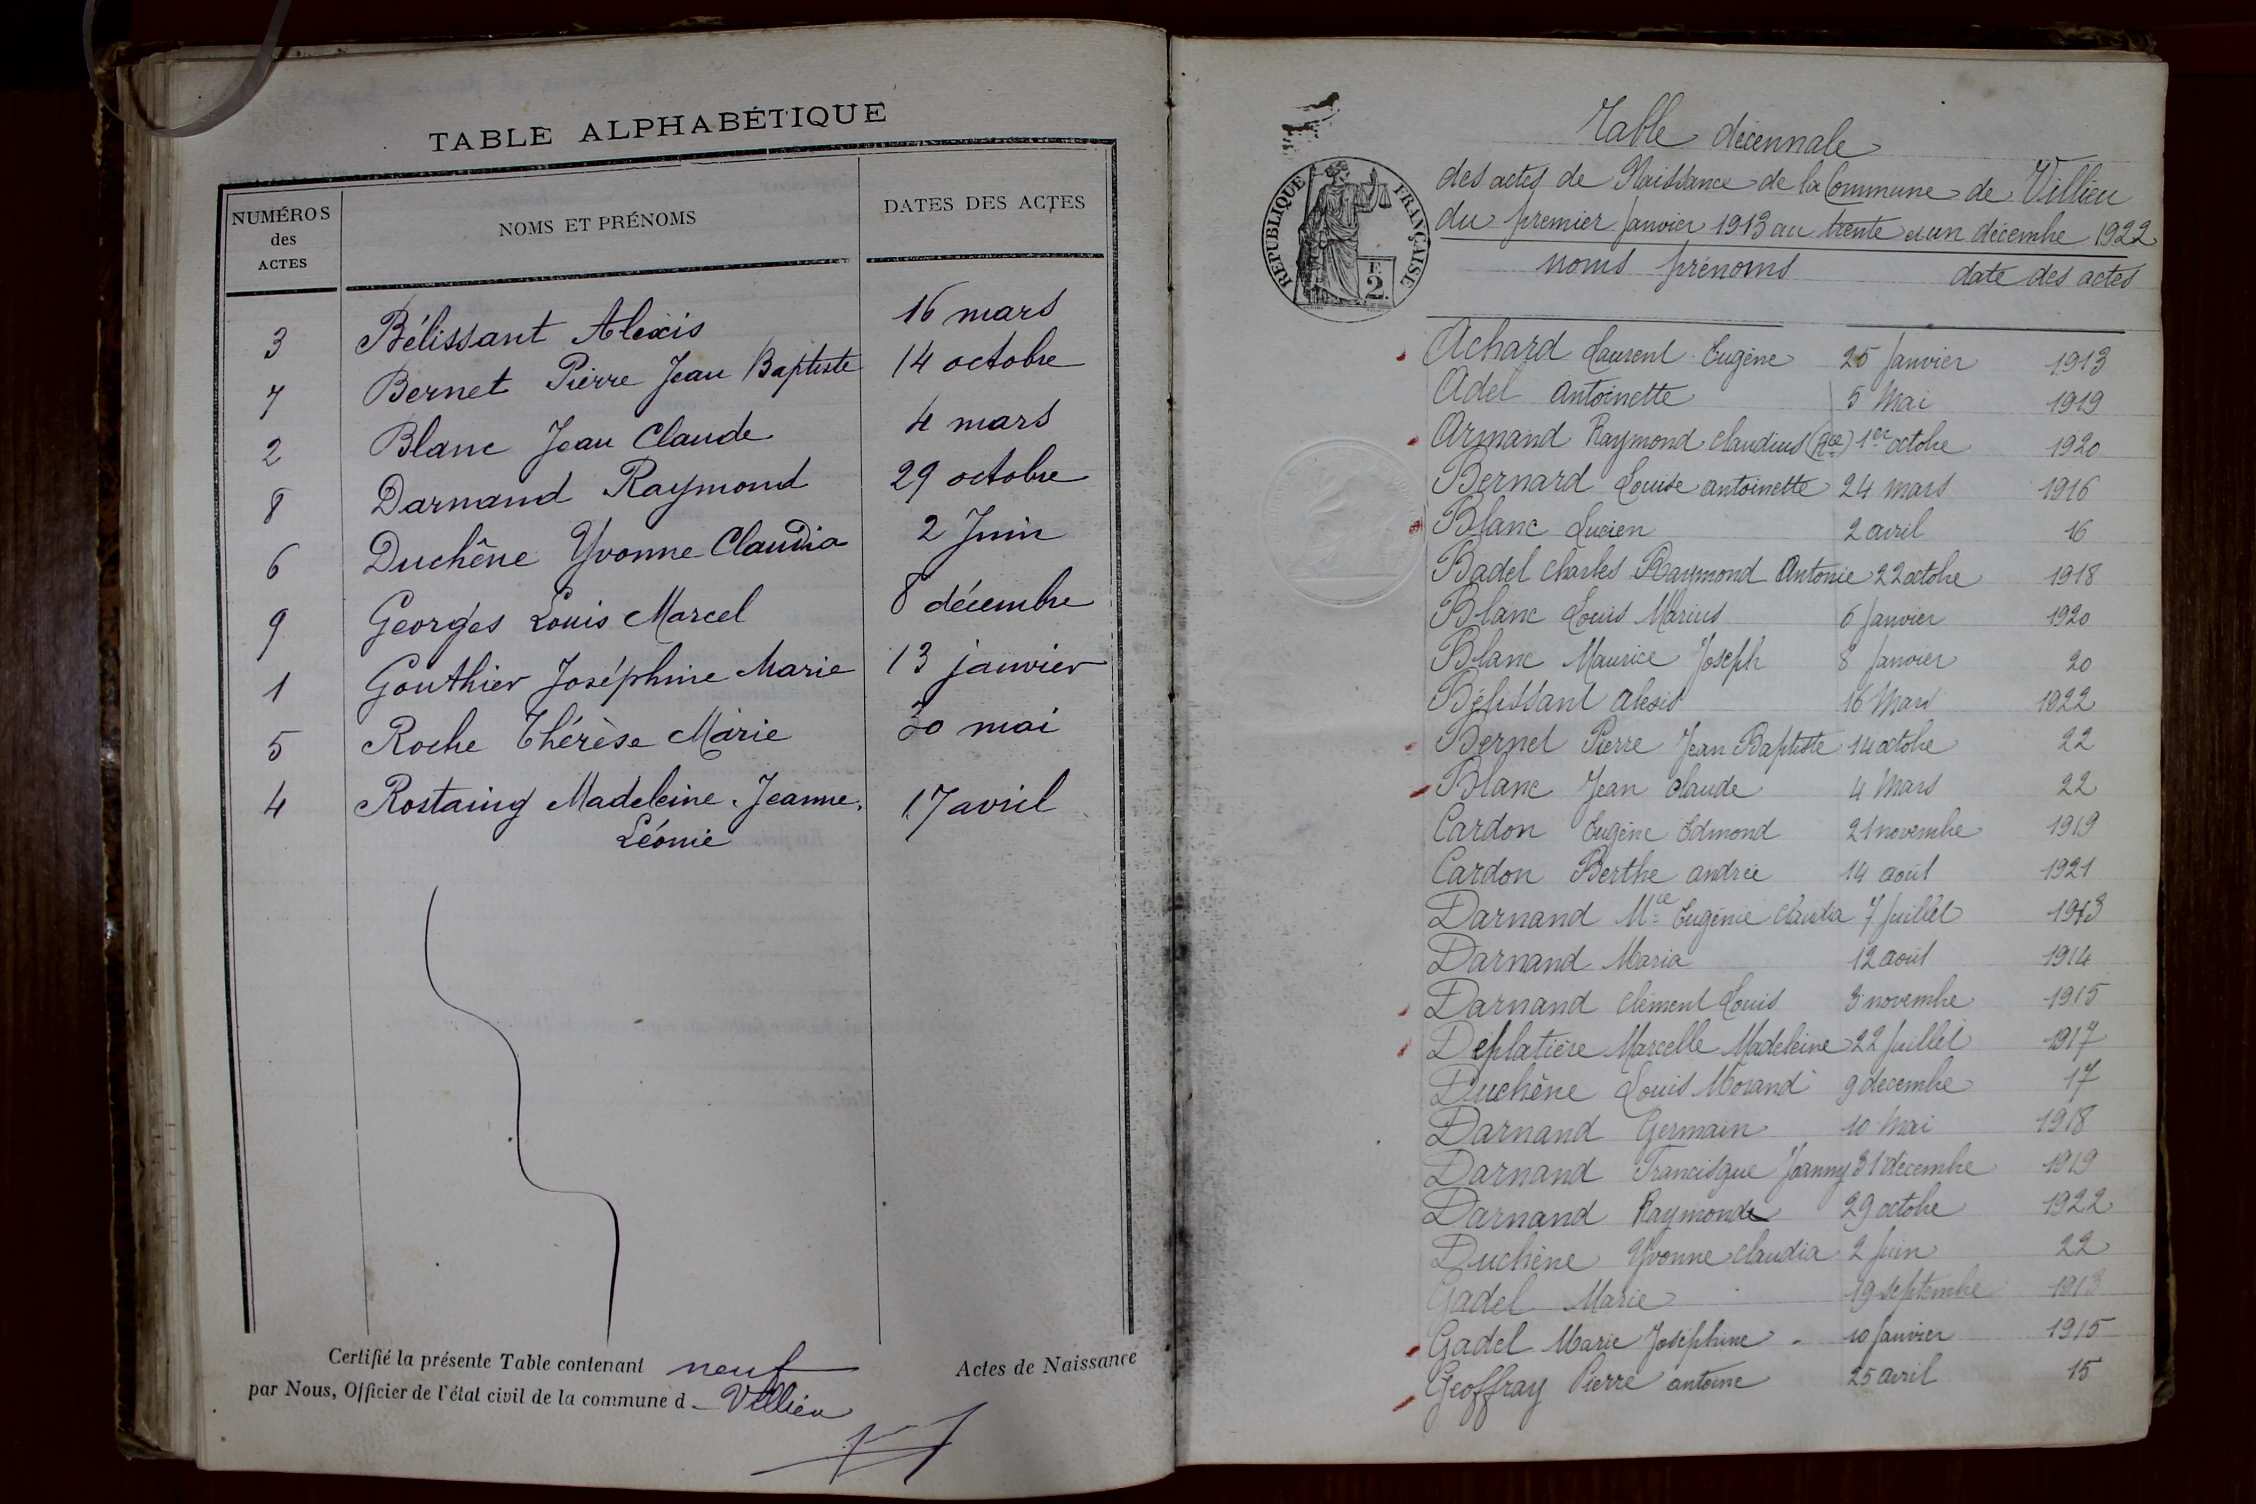 TABLE ALPHABÉTIQUE
NUMÉROS des ACTES NOMS ET PRÉNOMS DATES DES ACTES
3 Bélissant Alexis 16 mars
7 Bernet Pierre Jean Baptiste 14 octobre
2 Blanc Jean Claude 4 mars
8 Darnand Raymond 29 octobre
6 Duchêne Yvonne Claudia 2 Juin
9 Georges Louis Marcel 8 décembre
1 Gouthier Joséphine Marie 13 janvier
5 Roche Thérèse Marie 30 mai
4 Rostaing Madeleine Jeanne 17 avril
Léonie
Certifié la présente Table contenant neuf Actes de Naissance
par Nous, Officier de l'état civil de la commune d Villieu
RÉPUBLIQUE FRANÇAISE
F. 2.
Table décennale
des actes de Naissance de la Commune de Villieu
du premier Janvier 1913 au trente et un décembre 1922
noms prénoms date des actes
Achard Laurent Eugène 25 Janvier 1913
Adel Antoinette 5 Mai 1919
Armand Raymond Claudius 1er octobre 1920
Bernard Louise antoinette 24 mars 1916
Blanc Lucien 2 avril 16
Badel Charles Raymond Antonie 22 octobre 1918
Blanc Louis Marius 6 Janvier 1920
Blanc Maurice Joseph 8 Janvier 20
Bélissant alexis 16 Mars 1922
Bernet Pierre Jean Baptiste 14 octobre 22
Blanc Jean Claude 4 Mars 22
Cardon Eugène Edmond 21 novembre 1919
Cardon Berthe andrée 14 août 1921
Darnand Mce Eugénie Claudia 7 Juillet 1913
Darnand Maria 12 août 1914
Darnand Clément Louis 3 novembre 1915
Deplatière Marcelle Madeleine 22 Juillet 1917
Duchêne Louis Morand 9 décembre 17
Darnand Germain 10 Mai 1918
Darnand Francisque Joanny 31 décembre 1919
Darnand Raymonde 29 octobre 1922
Duchêne Yvonne Claudia 2 Juin 22
Gadel Marie 19 septembre 1913
Gadel Marie Joséphine 10 Janvier 1915
Geoffray Pierre antoine 25 avril 15